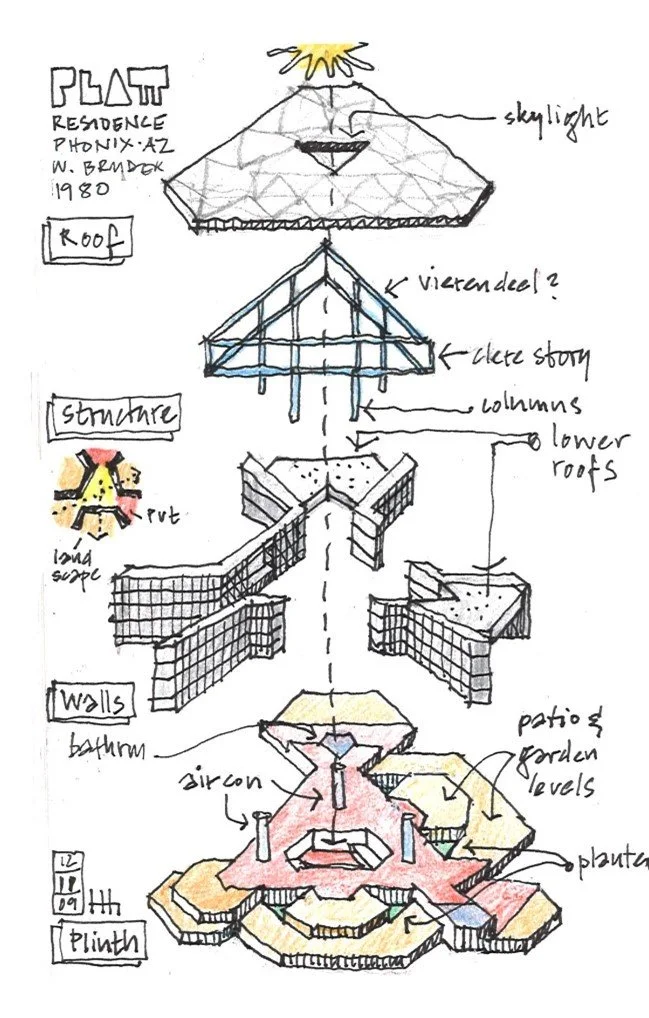 PLATT
RESIDENCE
PHONIX·AZ
W. BRUDER
1980
skylight
Roof
vierendeel?
clere story
columns
Structure
lower
roofs
Pvt
land
scape
Walls
bathrm
patio &
garden
levels
aircon
plante
12
18
09
Plinth